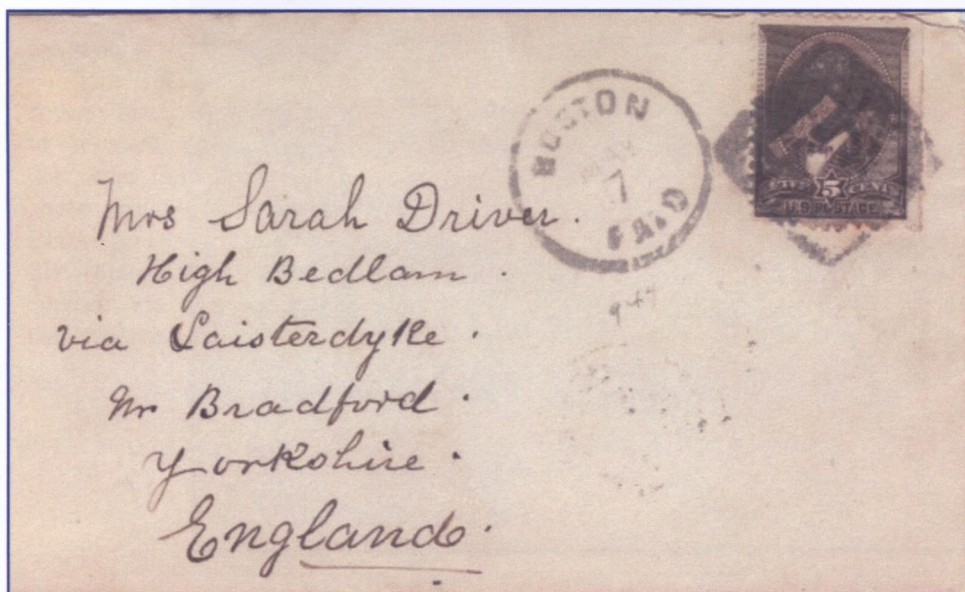 BOSTON
7
PAID
5
U.S. POSTAGE
Mrs Sarah Driver.
High Bedlam.
via Laisterdyke.
Nr Bradford.
Yorkshire.
England.